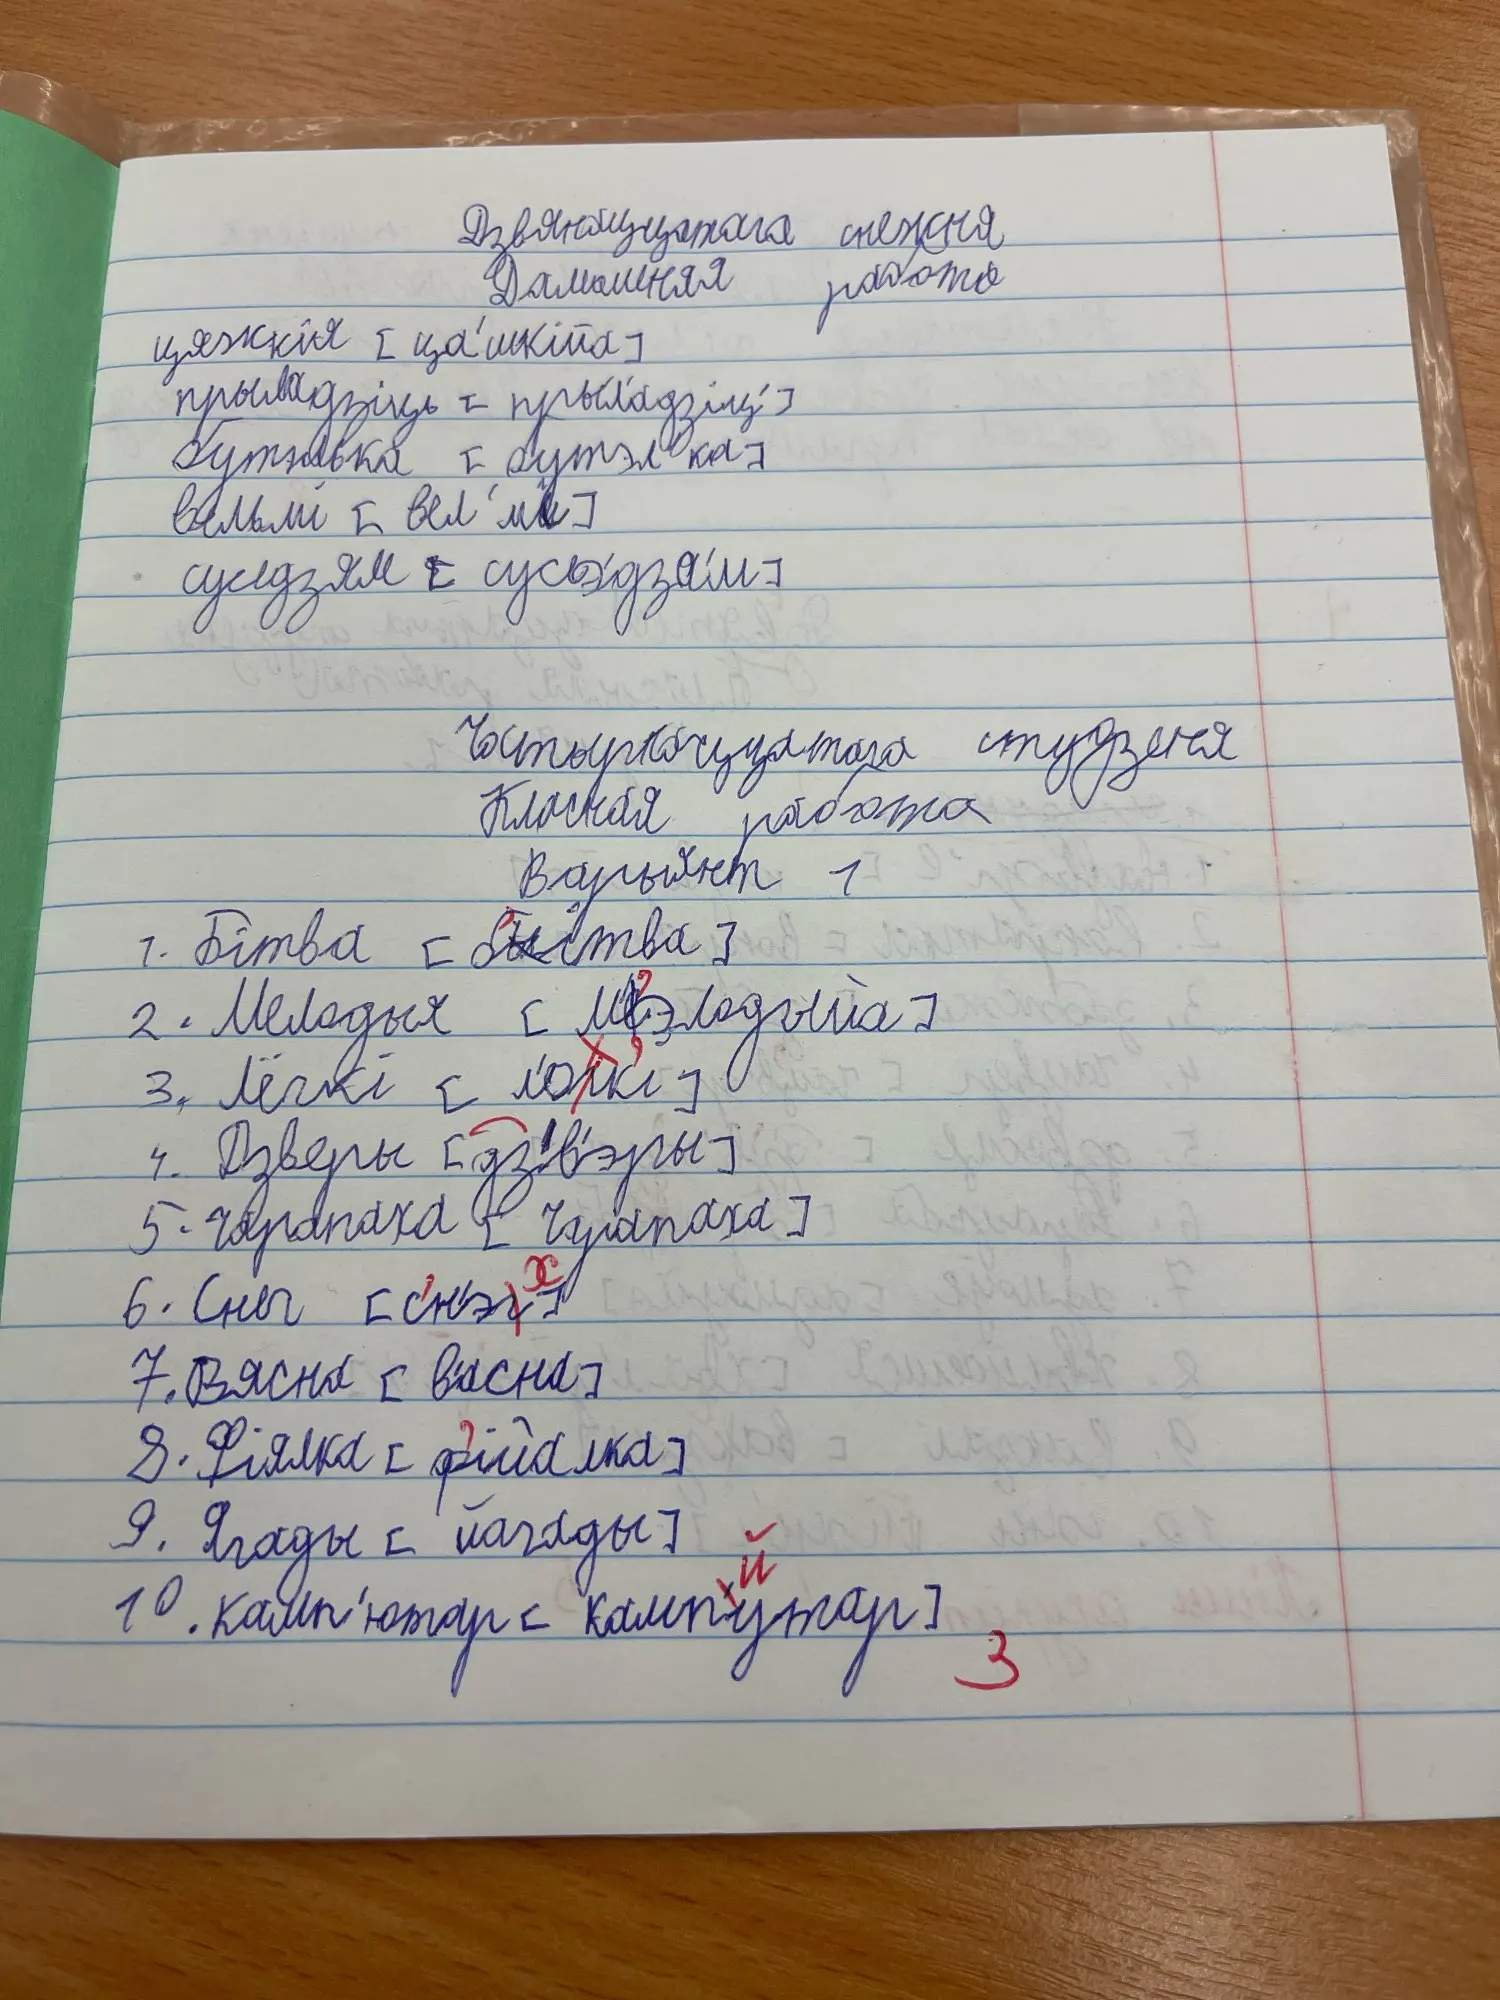 Дзвянаццатага снежня
Дамашняя работа
цяжкія [ца'шкійа]
прывадзіць [прыладзіц']
бутэлька [бутэл'ка]
вельмі [вел'мі]
суседзям [сусэ'дза'м]
Чатырнаццатага студзеня
Класная работа
Варыянт 1
1. Бітва [б'ітва]
2. Мелодыя [м'элодыйа]
3. Лёгкі [л'охк'і]
4. Дзверы [дз'в'эры]
5. Чарапаха [чарапаха]
6. Снег [с'н'эх]
7. Вясна [в'асна]
8. Фіялка [ф'ійалка]
9. Ягады [йагады]
10. камп'ютар [кампйутар]
3